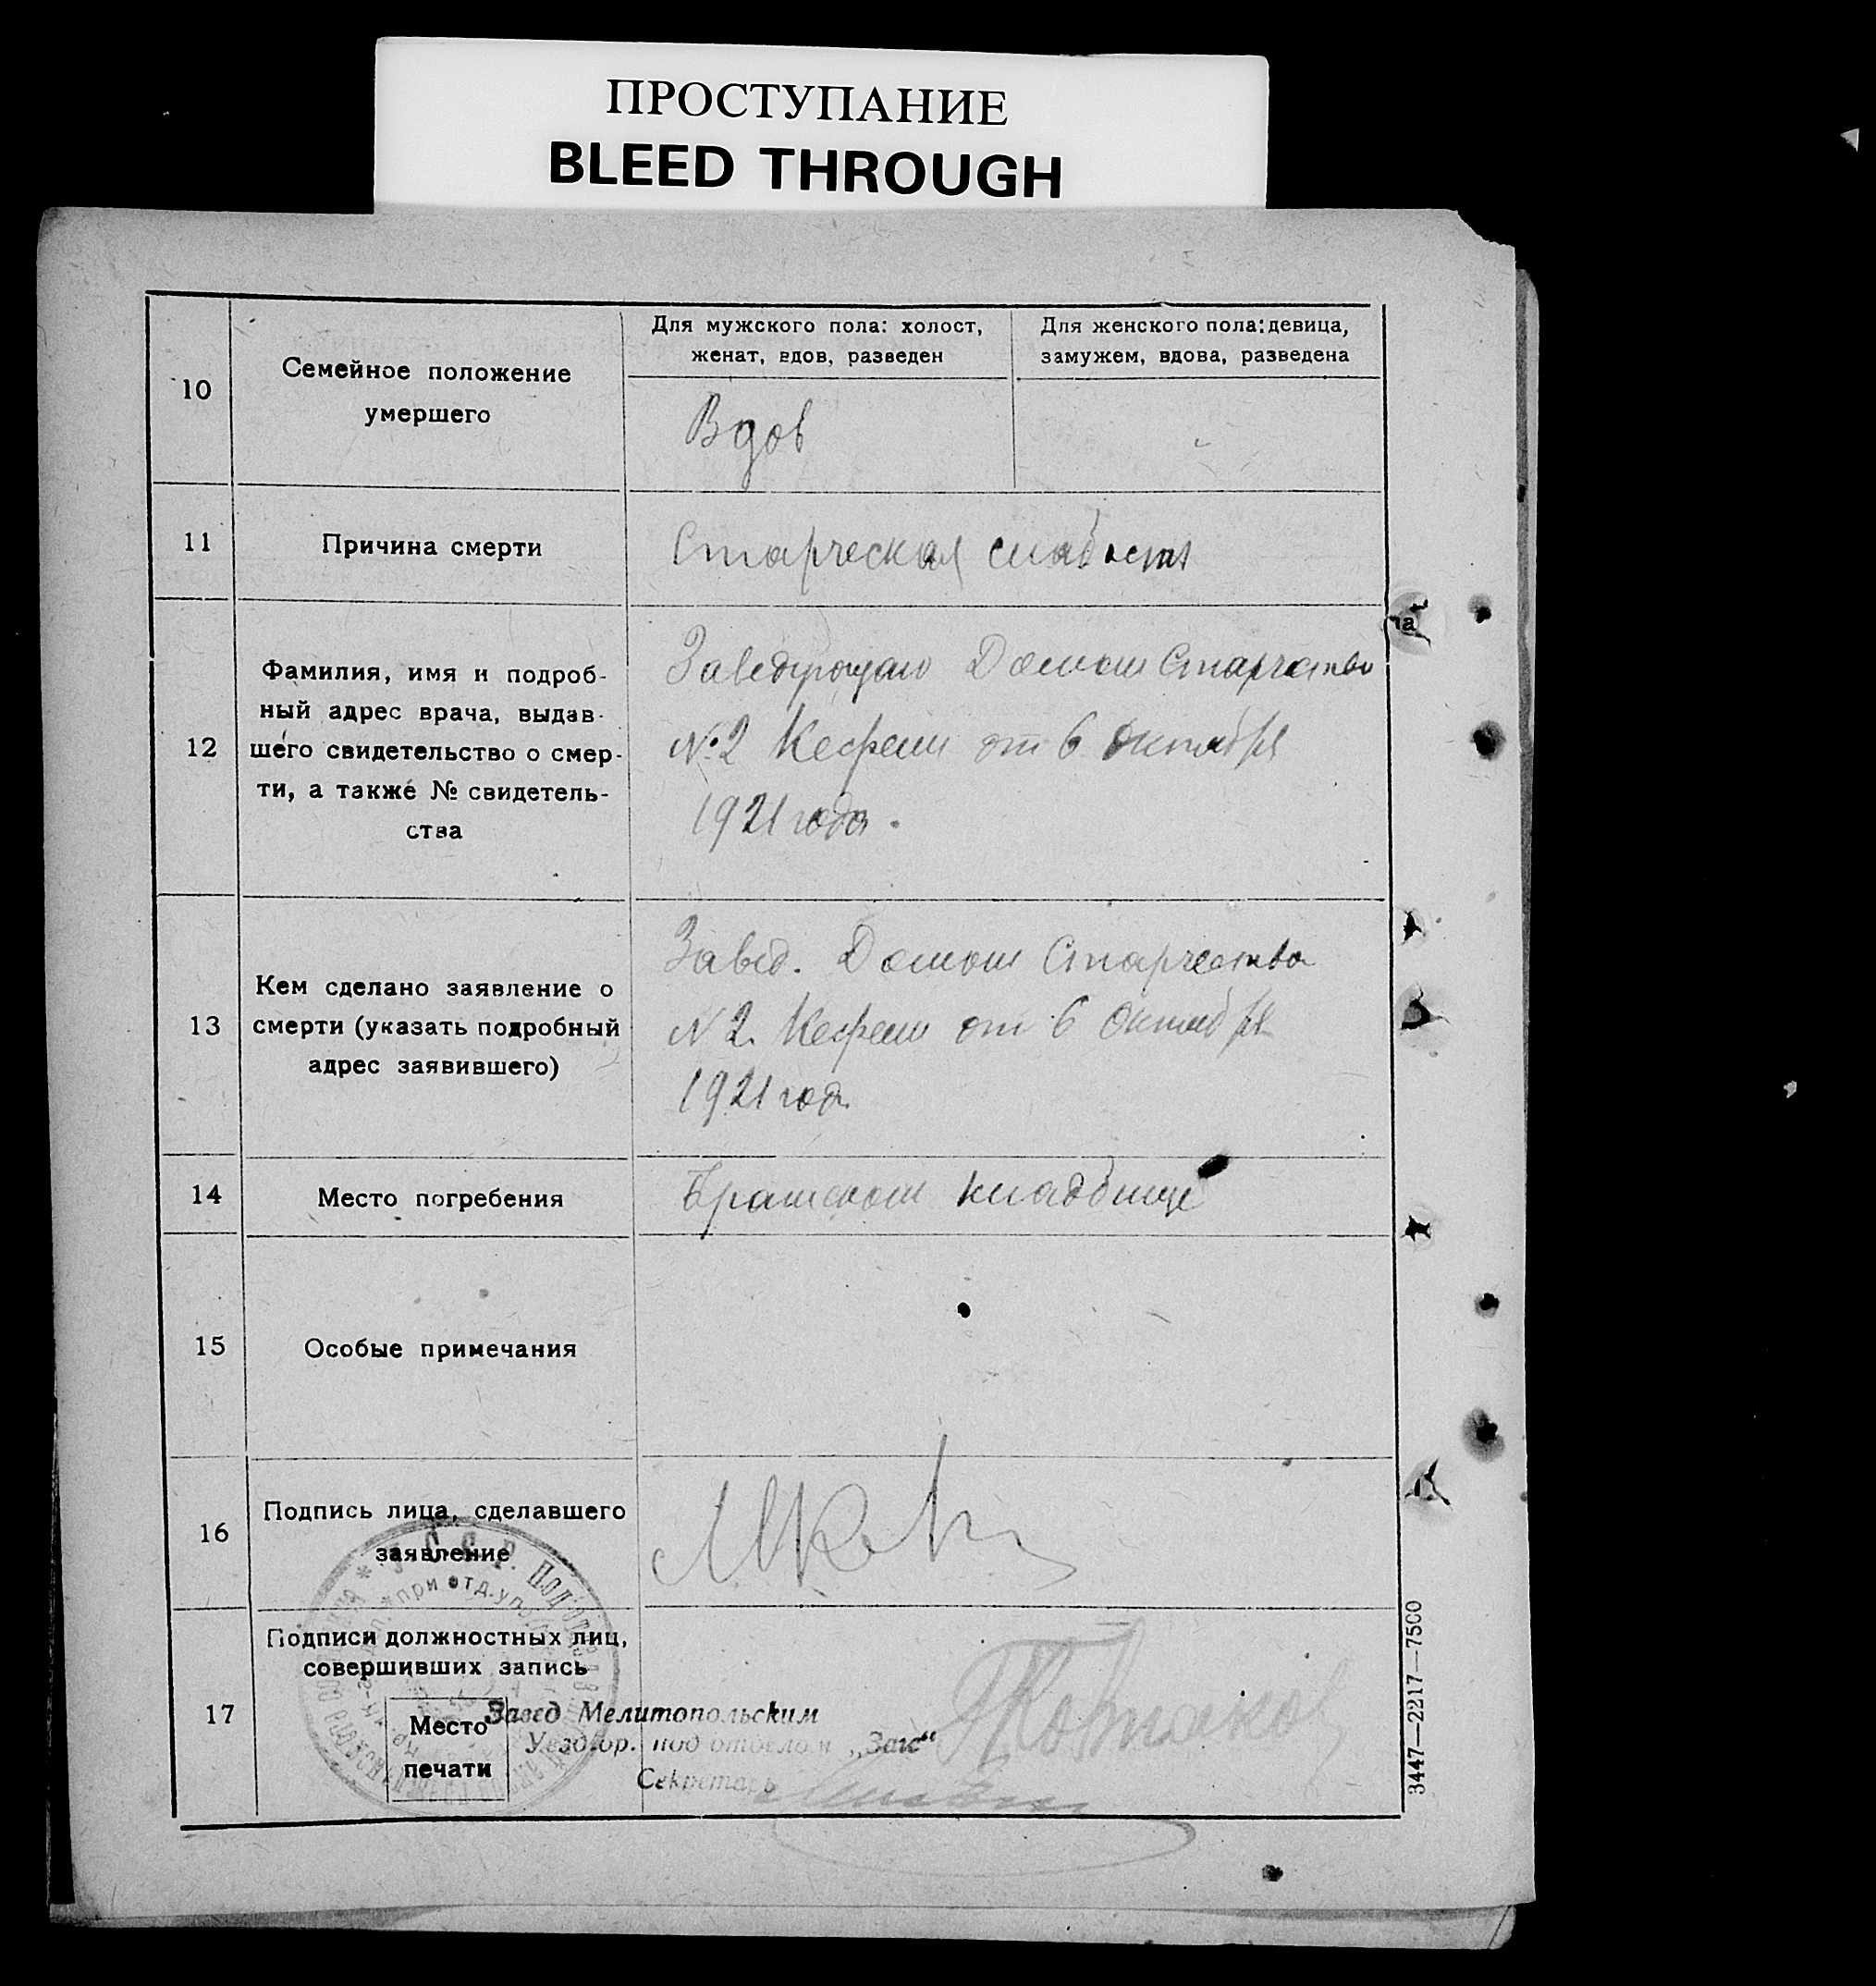 ПРОСТУПАНИЕ
BLEED THROUGH
10
Семейное положение
умершего
Для мужского пола: холост,
женат, вдов, разведен
Для женского пола: девица,
замужем, вдова, разведена
Вдов
11
Причина смерти
Старческая слабость
12
Фамилия, имя и подроб-
ный адрес врача, выдав-
шего свидетельство о смер-
ти, а также № свидетель-
ства
Домом Старчества
№ 2 от 6 Октября
1921 года.
13
Кем сделано заявление о
смерти (указать подробный
адрес заявившего)
Завед. Домом Старчества
N 2. от 6 Октября
1921 года
14
Место погребения
кладбище
15
Особые примечания
16
Подпись лица, сделавшего
заявление
17
Подписи должностных лиц,
совершивших запись
Место
печати
Завед Мелитопольским
Уездгор. под отделом „Загс“
Секретарь
У.С.С.Р.
при отд. упр
3447—2217—7500